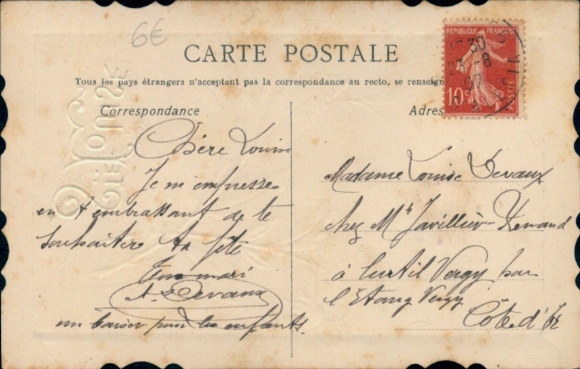 6€
CARTE POSTALE
Tous les pays étrangers n'acceptant pas la correspondance au recto, se renseign
Correspondance
Adres
REPUBLIQUE FRANÇAISE
10c
POSTES
30
-8
Chère Louise
Je m'empresse
en t'embrassant de te
souhaiter ta fête
Ton mari
A Devaux
un baiser pour les enfants.
Madame Louise Devaux
chez Mr Javillier Renand
à Curtil Vergy par
l'Etang Vergy
Côte d'Or